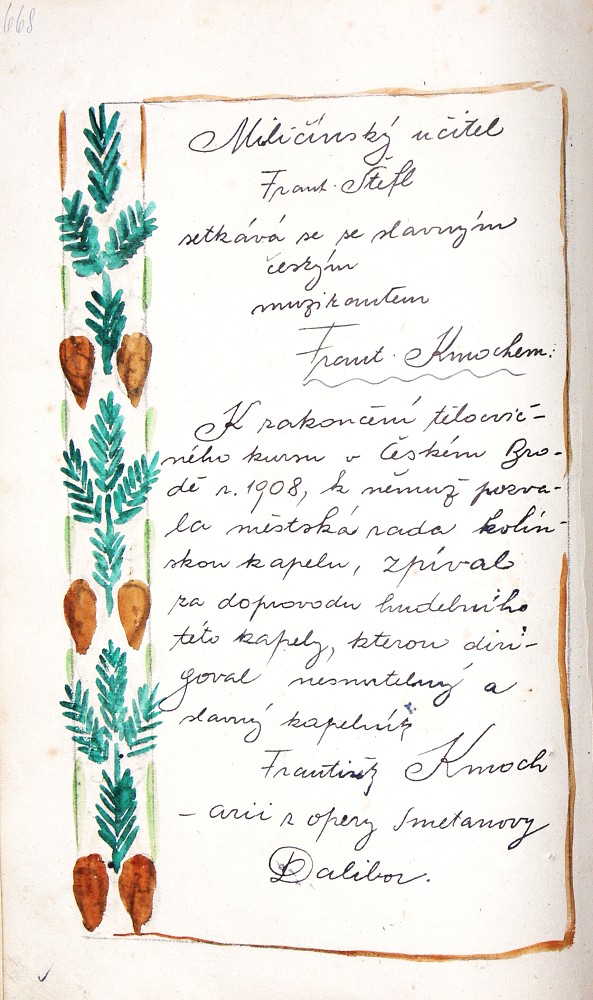 668
Miličínský učitel
Frant. Štěfl
setkává se se slavným
českým
muzikantem
Frant. Kmochem:
K zakončení tělocvič-
ného kursu v Českém Bro-
dě r. 1908, k němuž pozva-
la městská rada kolín-
skou kapelu, zpíval
za doprovodu hudebního
této kapely, kterou diri-
goval nesmrtelný a
slavný kapelník
František Kmoch
- arii z opery Smetanovy
Dalibor.